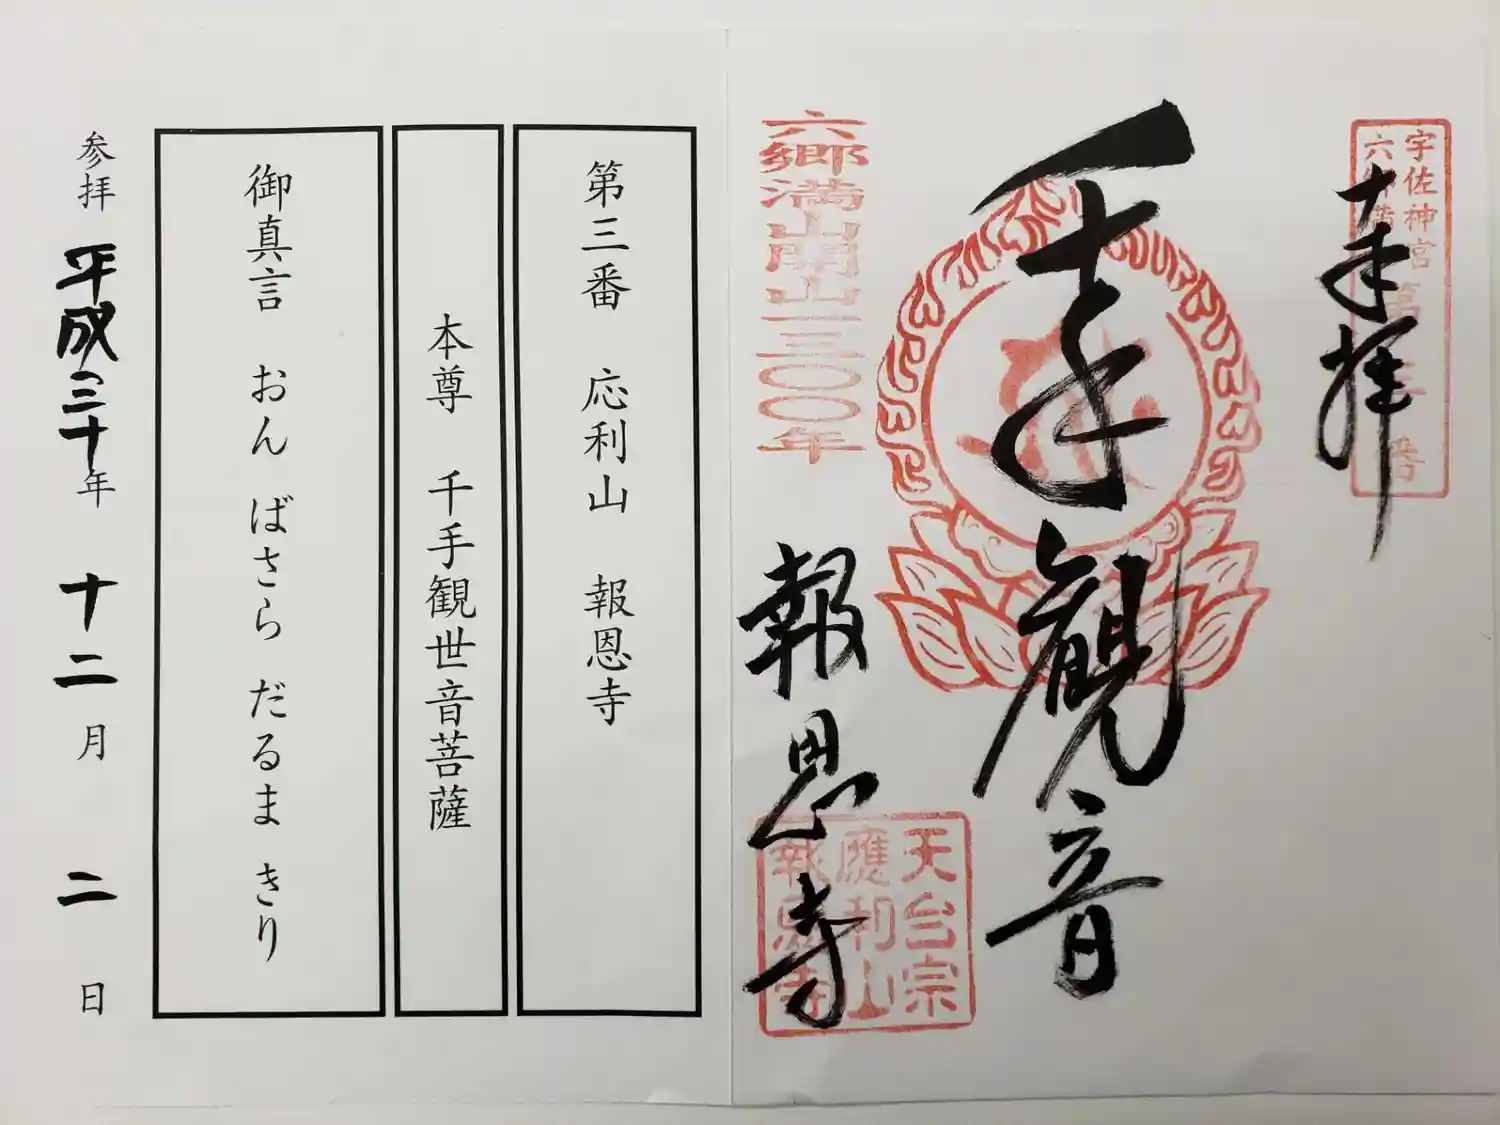 奉拝
宇佐神宮
六郷満
第三番
千手観音
六郷満山開山一三〇〇年
報恩寺
天台宗
應利山
報恩寺
第三番 応利山 報恩寺
本尊 千手観世音菩薩
御真言 おん ばさら だるま きり
参拝 平成三十年 十二月 二日